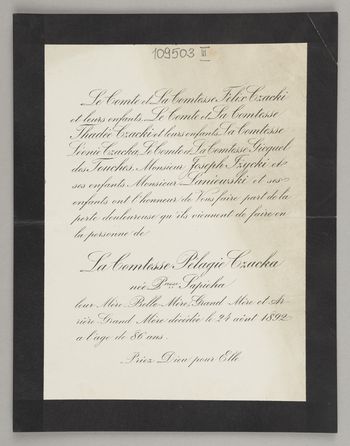 109503 III
Le Comte et La Comtesse Félix Czacki
et leurs enfants, Le Comte et La Comtesse
Thadée Czacki et leurs enfants, La Comtesse
Léonie Czacka, Le Comte et La Comtesse Gicquel
des Touches, Monsieur Joseph Iżycki et
ses enfants, Monsieur Laniewski et ses
enfants ont l'honneur de Vous faire part de la
perte douloureuse qu'ils viennent de faire en
la personne de
La Comtesse Pélagie Czacka
née Psse Sapieha
leur Mère, Belle-Mère, Grand Mère et Ar-
rière Grand Mère décédée le 24 août 1892
a l'age de 86 ans.
Priez Dieu pour Elle